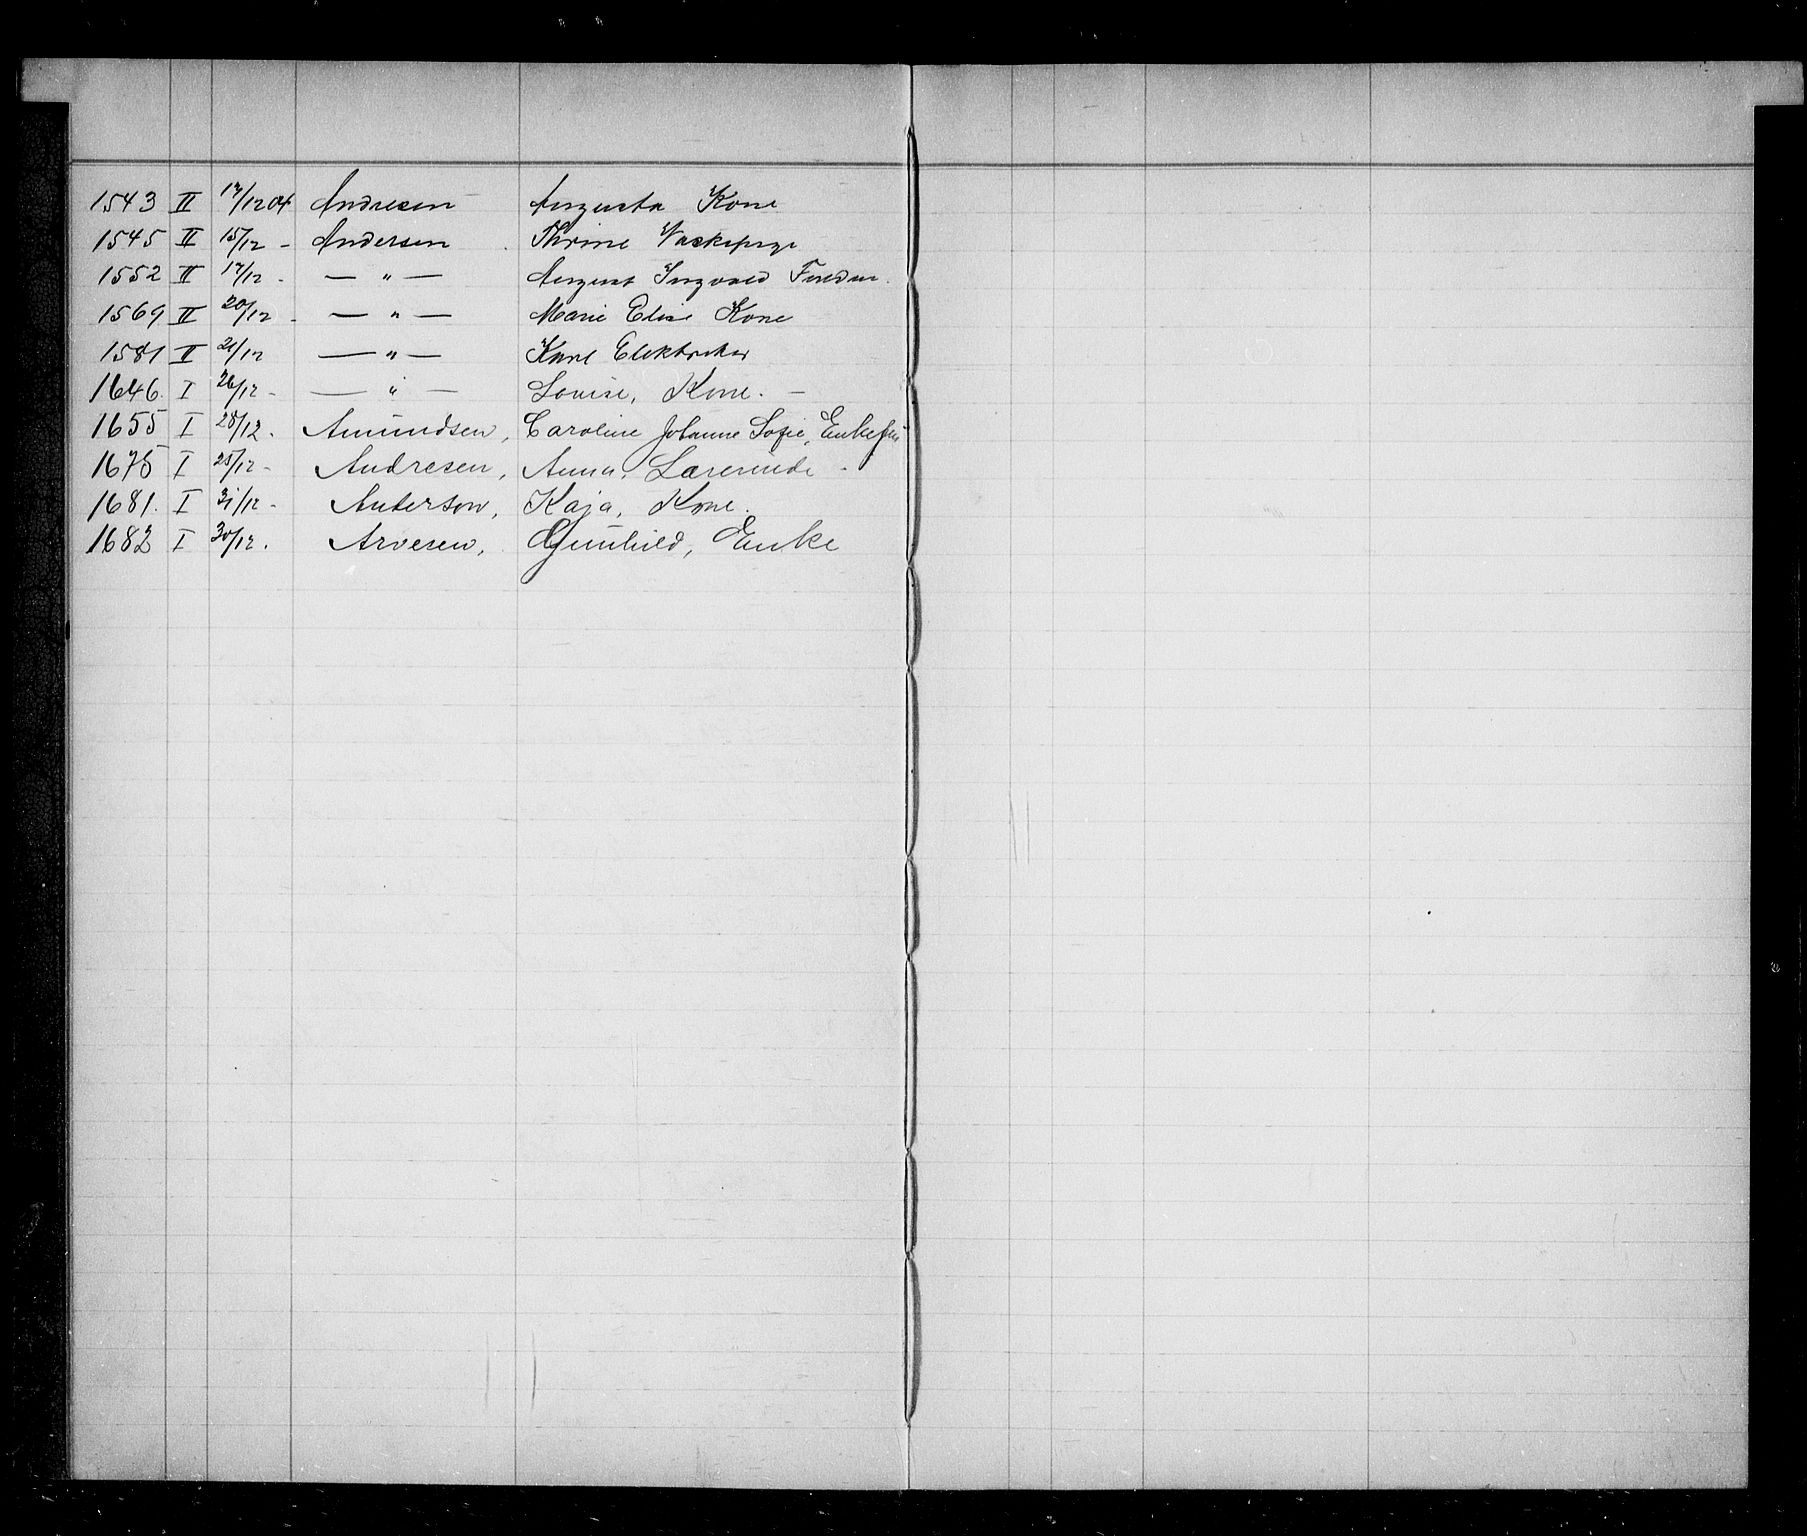 1543 II 17/12 04 Andresen Augusta Kone
1545 II 15/12 - Andersen Thrine Vaskepige
1552 II 17/12 - — " — August Ingvald
1569 II 20/12 - — " — Marie Elise Kone
1581 II 21/12 — " — Karl Elektriker
1646. I 26/12 - — " — Lovise, Kone. -
1655 I 28/12. Amundsen, Caroline Johanne Sofie, Enkefru
1675 I 25/12 - Andresen, Anna, Lærerinde -
1681. I 31/12 - Anderson, Kaja, Kone.
1682 I 30/12. Arvesen, Gunhild, Enke